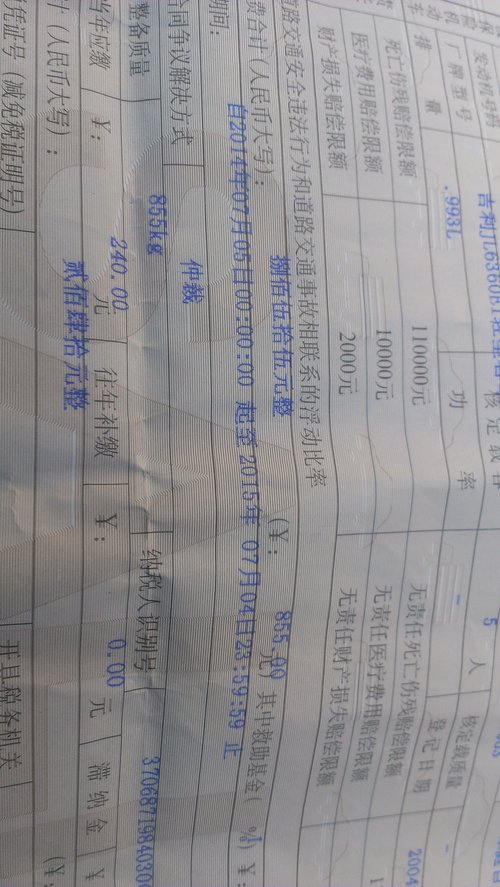 发动机号码
厂牌型号 吉利JL6360 核定载客 5 人 核定载质量
排量 .993L 功率 - 登记日期 2004
死亡伤残赔偿限额 110000元 无责任死亡伤残赔偿限额
医疗费用赔偿限额 10000元 无责任医疗费用赔偿限额
财产损失赔偿限额 2000元 无责任财产损失赔偿限额
道路交通安全违法行为和道路交通事故相联系的浮动比率 %
费合计(人民币大写): 捌佰伍拾伍元整 (¥: 855.00 元) 其中救助基金( %) ¥:
期间: 自2014年07月05日00:00:00 起至 2015年 07月04日23:59:59 止
合同争议解决方式 仲裁
整备质量 855kg 纳税人识别号 3706871984030
当年应缴 ¥: 240.00 元 往年补缴 ¥: 0.00 元 滞纳金 ¥
计(人民币大写): 贰佰肆拾元整 (¥:
凭证号(减免税证明号) 开具税务机关